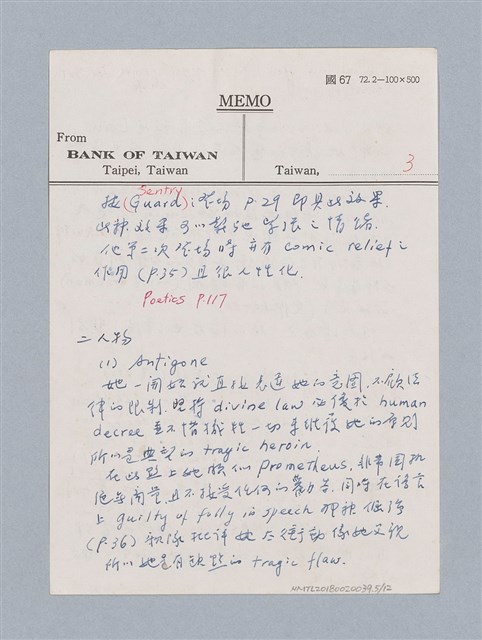 國 67 72.2-100×500
MEMO
From
BANK OF TAIWAN
Taipei, Taiwan
Taiwan,
3
Sentry
(Guard)之登場 P.29 即具此效果.
此種效果可以鬆弛緊張之情緒.
他第二次登場時亦有 comic relief 之
作用 (P.35) 且很人性化.
Poetics P.117
二 人物
(1) Antigone
她一開始就直接表達她的意圖, 不顧法
律的限制. 堅持 divine law 必優於 human
decree 並不惜犧牲一切來維護她的原則
所以是典型的 tragic heroin.
在此點上她類似 Prometheus. 非常固執
絕不同意且不接受任何的勸告. 同時在語言
上 guilty of folly in speech 那種倔強
(P.36) 歌隊批評她太衝動
所以她是有缺點的 tragic flaw.
NMTL20180020039.5/12